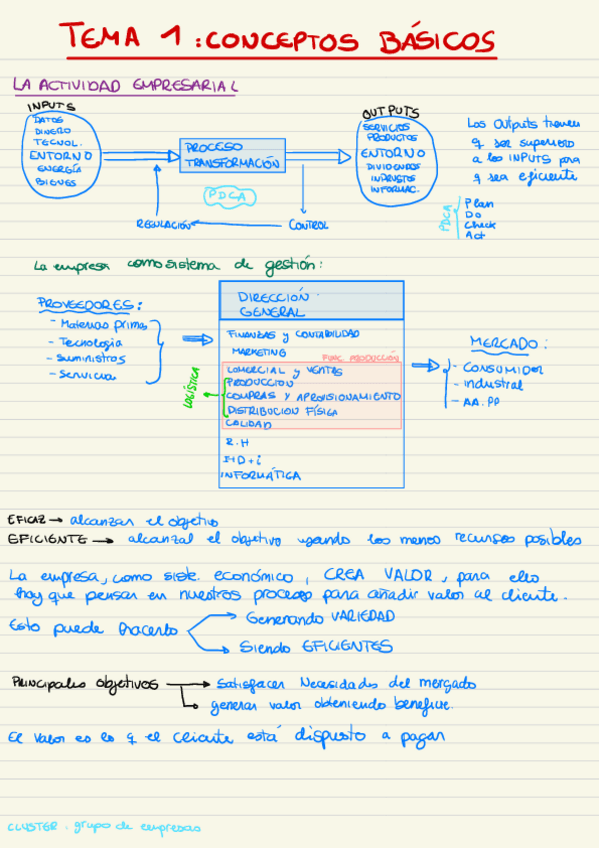 TEMA 1: CONCEPTOS BÁSICOS
LA ACTIVIDAD EMPRESARIAL
INPUTS
DATOS
DINERO
TECNOL.
ENTORNO
ENERGÍA
BIENES
PROCESO
TRANSFORMACIÓN
PDCA
REGULACIÓN
CONTROL
OUTPUTS
SERVICIOS
PRODUCTOS
ENTORNO
DIVIDENDOS
INFORMAC.
Los Outputs tienen
q ser superiores
a los INPUTS para
q sea eficiente
PDCA
Plan
Do
Check
Act
La empresa como sistema de gestión:
PROVEEDORES:
- Materias primas
- Tecnologia
- Suministros
- Servicios
LOGÍSTICA
DIRECCIÓN
GENERAL
FINANZAS y CONTABILIDAD
MARKETING
FUNC. PRODUCCIÓN
COMERCIAL y VENTAS
PRODUCCION
COMPRAS Y APROVISIONAMIENTO
DISTRIBUCION FÍSICA
CALIDAD
R.H
I+D+i
INFORMÁTICA
MERCADO:
- CONSUMIDOR
- industrial
- AA.PP
EFICAZ → alcanzar el objetivo
EFICIENTE → alcanzal el objetivo usando los menos recursos posibles
La empresa, como siste. económico, CREA VALOR, para ello
hay que pensar en nuestros procesos para añadir valor al cliente.
Esto puede hacerlo
Generando VARIEDAD
Siendo EFICIENTES
Principales objetivos
→ Satisfacer Necesidades del mercado
→ generar valor obteniendo benefície.
El valor es lo q el cliente está dispusto a pagar
CLUSTER: grupo de empresas